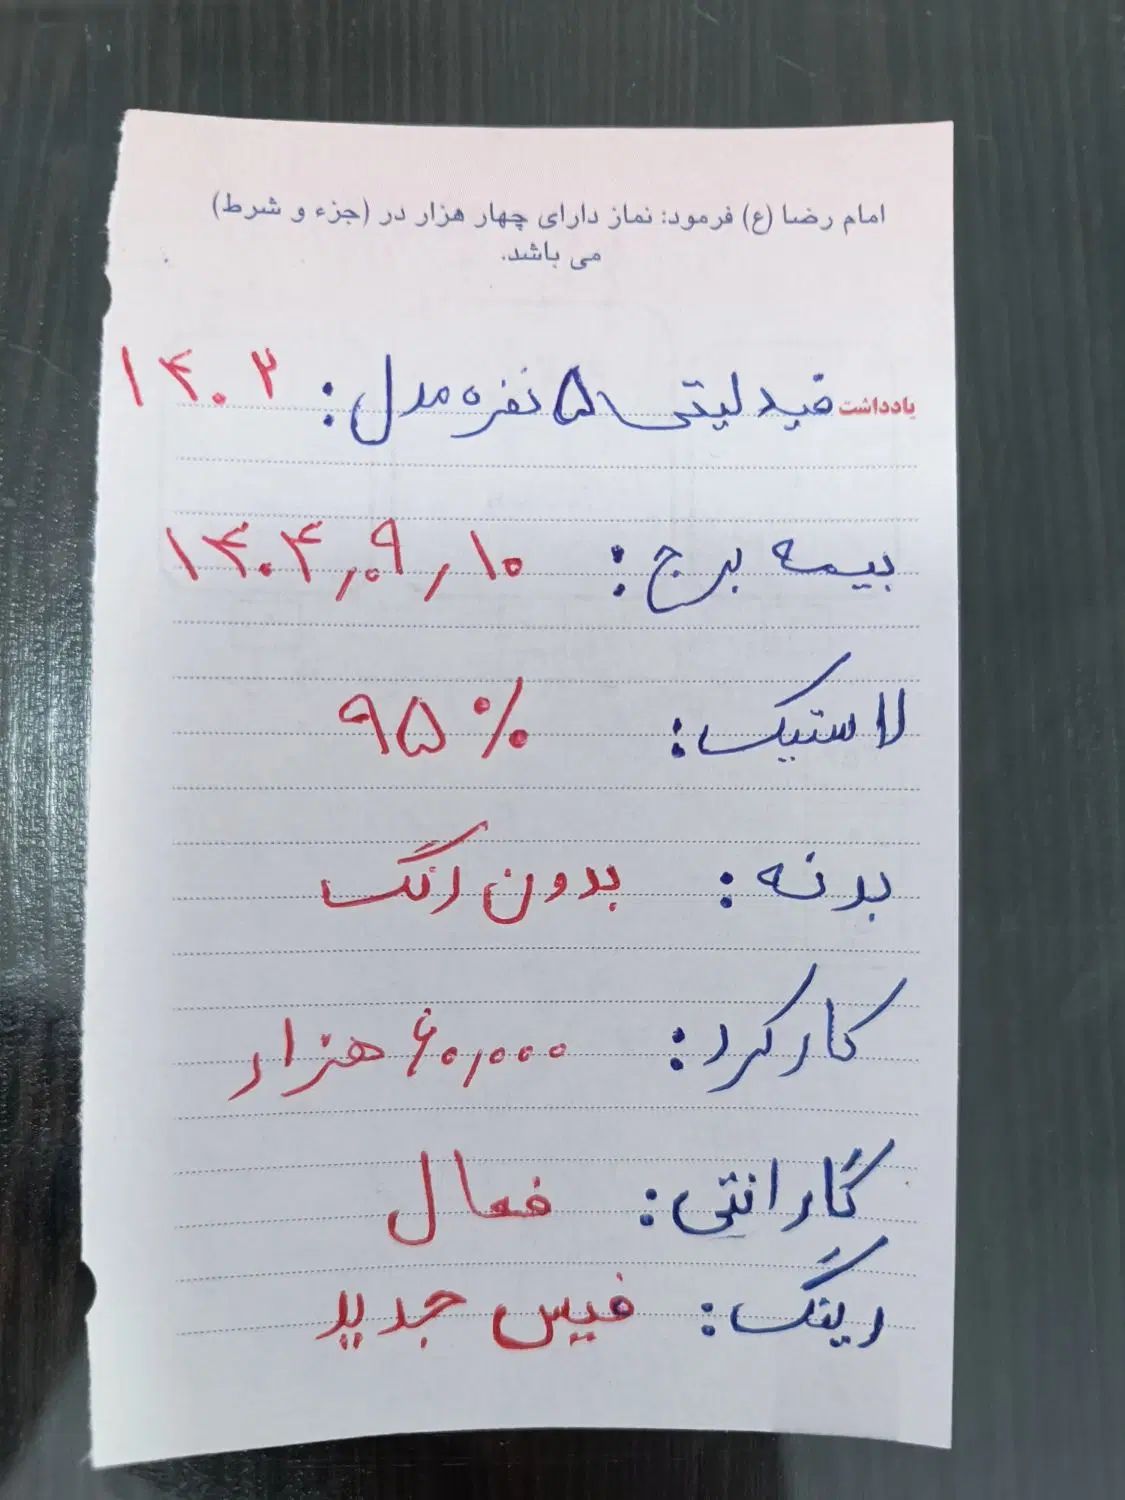 امام رضا (ع) فرمود: نماز دارای چهار هزار در (جزء و شرط)
می باشد.
یادداشت فیدلیتی ۵ نفره مدل: ۱۴۰۲
بیمه برج: ۱۴۰۴٫۰۹٫۱۰
لاستیک: ۹۵٪
بدنه: بدون رنگ
کارکرد: ۶۰٫۰۰۰ هزار
گارانتی: فعال
رینگ: فیس جدید